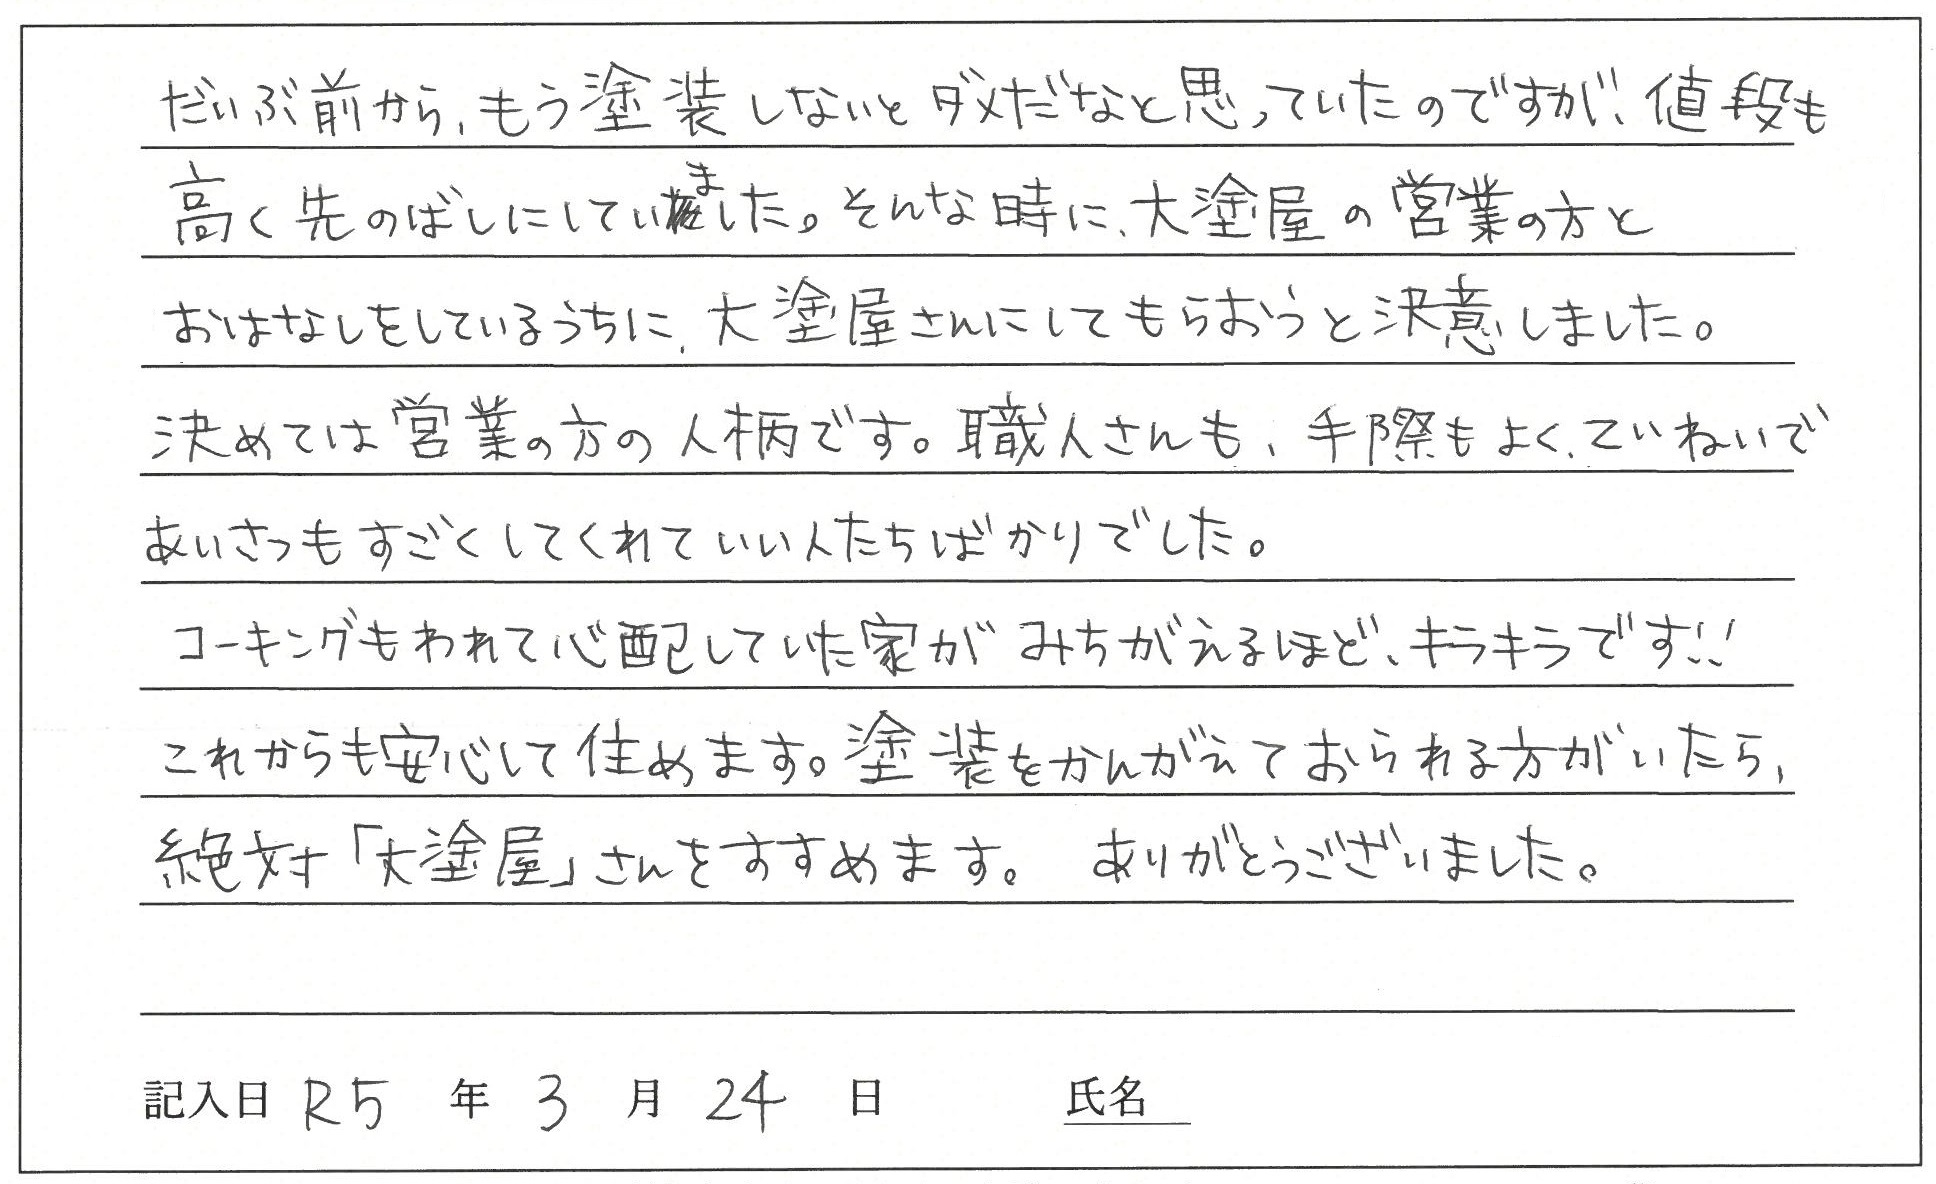 だいぶ前から、もう塗装しないとダメだなと思っていたのですが、値段も
高く先のばしにしていました。そんな時に、大塗屋の営業の方と
おはなしをしているうちに、大塗屋さんにしてもらおうと決意しました。
決めては営業の方の人柄です。職人さんも、手際もよく、ていねいで
あいさつもすごくしてくれていい人たちばかりでした。
コーキングもわれて心配していた家がみちがえるほど、キラキラです!!
これからも安心して住めます。塗装をかんがえておられる方がいたら、
絶対「大塗屋」さんをすすめます。 ありがとうございました。
記入日 R5 年 3 月 24 日 氏名